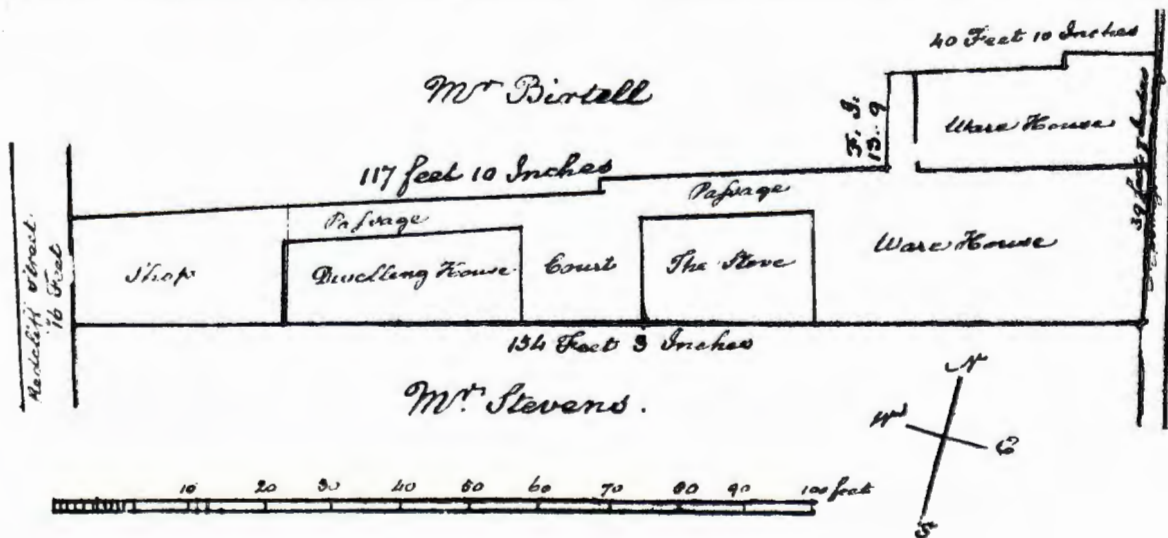 40 Feet 10 Inches
Mr Birtell
F. I.
13..9
Ware House
117 feet 10 Inches
Passage
Passage
Redcliff Street
16 Feet
Shop
Dwelling House
Court
The Stove
Ware House
39 feet
134 Feet 3 Inches
Mr. Stevens.
N
W
E
S
10 20 30 40 50 60 70 80 90 100 feet